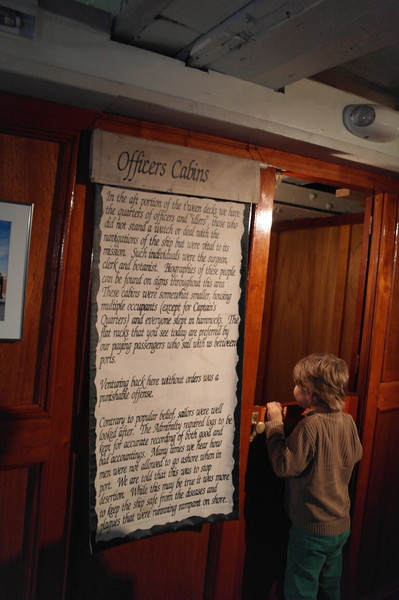 Officers Cabins
In the aft portion of the t'ween decks we have
the quarters of officers and "idlers", those who
did not stand a watch or deal with the
navigations of the ship but were vital to its
mission. Such individuals were the surgeon,
clerk and botanist. Biographies of these people
can be found on signs throughout this area.
These cabins were somewhat smaller, housing
multiple occupants (except for Captain's
Quarters) and everyone slept in hammocks. The
flat racks that you see today are preferred by
our paying passengers who sail with us between
ports.
Venturing back here without orders was a
punishable offense.
Contrary to popular belief, sailors were well
looked after. The Admiralty required logs to be
kept for accurate recording of both good and
bad accountings. Many times we hear how
men were not allowed to go ashore when in
port. We are told that this was to stop
desertion. While this may be true it was more
to keep the ship safe from the diseases and
plagues that were running rampant on shore.